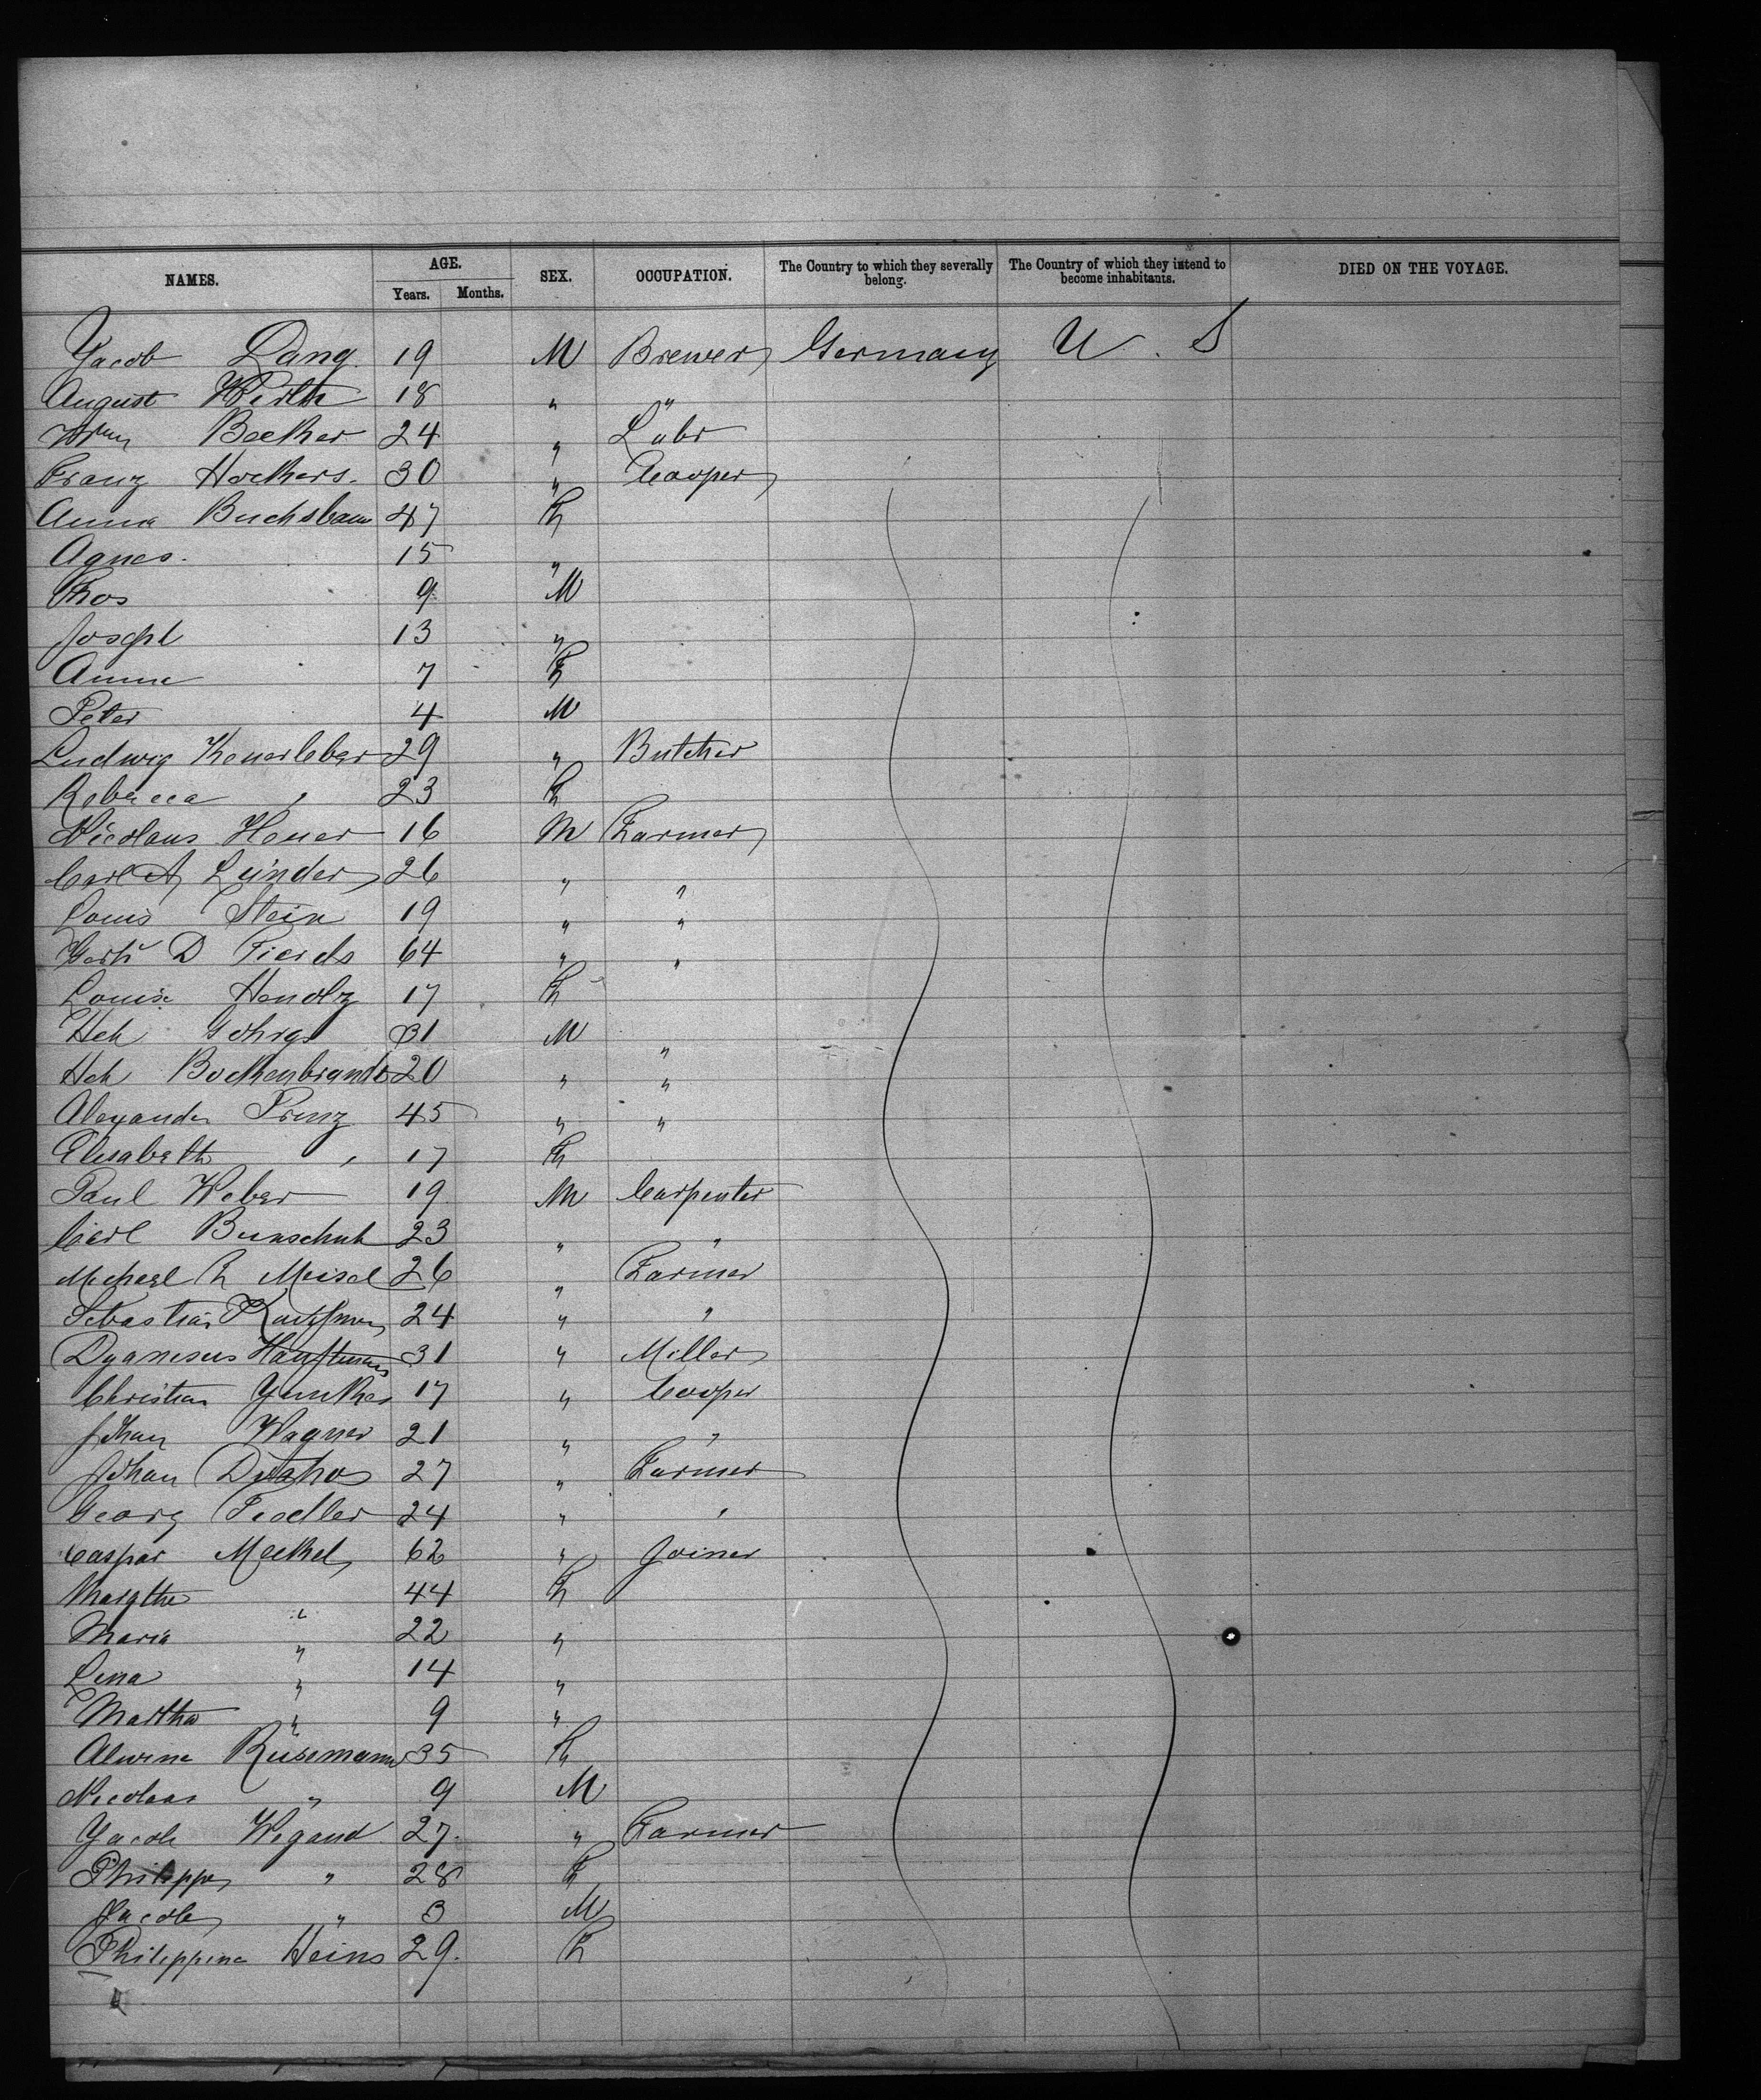 NAMES. AGE. SEX. OCCUPATION. The Country to which they severally belong. The Country of which they intend to become inhabitants. DIED ON THE VOYAGE.
Years. Months.
Jacob Lang 19 M Brewer Germany U. S
August Wirth 18 " "
Wm Becker 24 " Labr
Franz Hockers. 30 " Cooper
Anna Buchsbaum 47 F
Agnes. 15 "
Thos 9 M
Joseph 13 "
Anna 7 F
Peter 4 M
Ludwig Keuerleber 29 " Butcher
Rebecca " 23 F
Nicolaus Heuer 16 M Farmer
Carl A Leinder 26 " "
Louis Stein 19 " "
D 64 " "
Louise 17 F
Hch 31 M "
Hch Bockenbrandt 20 " "
Alexander Prinz 45 " "
Elisabeth " 17 F
Paul Weber 19 M Carpenter
Carl Bunschuh 23 " "
Michael F Meisel 26 " Farmer
Sebastian Kauffman 24 " "
31 " Miller
Christian Yunker 17 " Cooper
Johan Wagner 21 " "
Johan 27 " Farmer
Georg Fiedler 24 " "
Caspar Meckel 62 " Joiner
Margthe " 44 F
Maria " 22 "
Lina " 14 "
Martha " 9 "
Alwine Rüsemann 35 F
Nicolaas " 9 M
Jacob Wigand 27. " Farmer
Philippe " 28 F
Jacob " 3 M
Philippina Heins 29. F